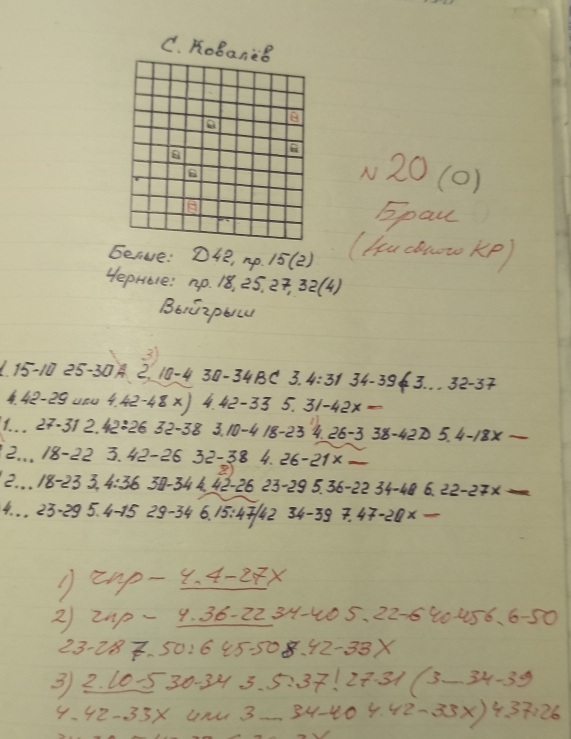 С. Ковалёв
N 20 (0)
Брак
Белые: Д42, пр. 15(2)
Черные: пр. 18, 25, 27, 32(4)
Выйгрыш
3)
1. 15-10 25-30 A 2. 10-4 30-34 BC 3. 4:31 34-39 3... 32-37
4. 42-29 или 4. 42-48 x) 4. 42-33 5. 31-42x —
1... 27-31 2. 42:26 32-38 3. 10-4 18-23 4. 26-3 38-42 D 5. 4-18x —
2... 18-22 3. 42-26 32-38 4. 26-21x —
2... 18-23 3. 4:36 30-34 4. 42-26 23-29 5. 36-22 34-40 6. 22-27x —
4... 23-29 5. 4-15 29-34 6. 15:47/42 34-39 7. 47-20x —
1) чпр — 4. 4-27X
2) чпр — 4. 36-22 34-40 5. 22-6 40-45 6. 6-50
23-28 7. 50:6 45-50 8. 42-33X
3) 2. 10-5 30-34 3. 5:37! 27-31 (3... 34-39
4. 42-33X или 3... 34-40 4. 42-33X) 4. 37:26